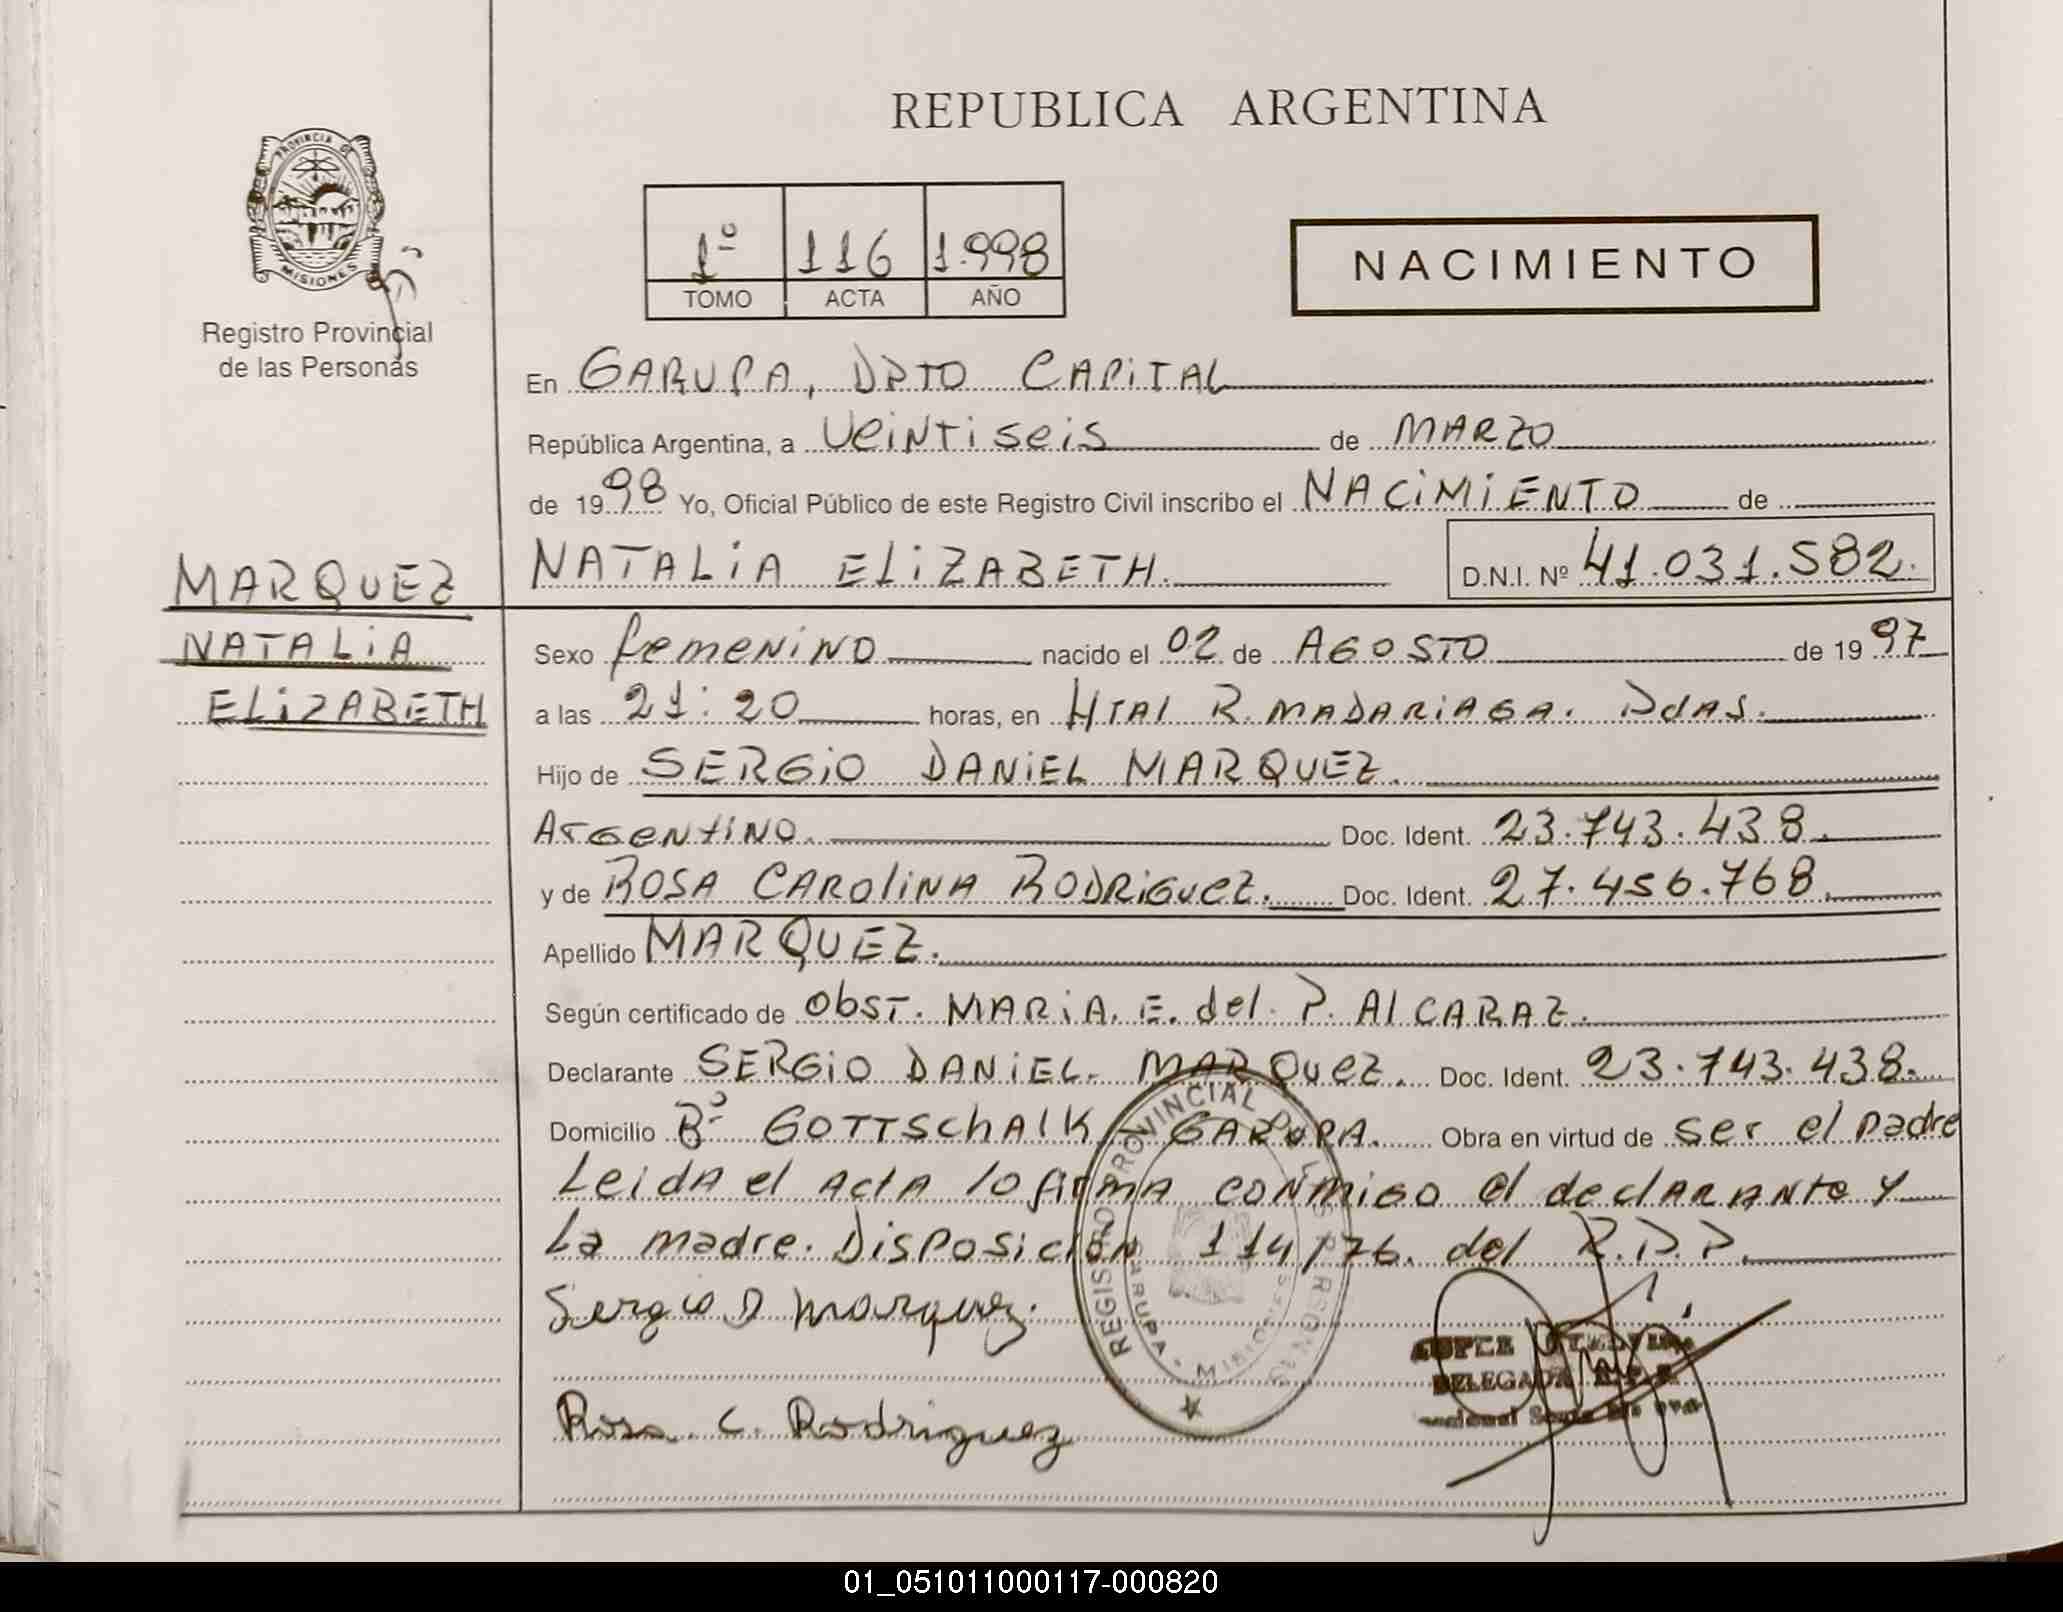 REPUBLICA ARGENTINA
PROVINCIA DE
MISIONES
Registro Provincial
de las Personas
1º 116 1.998
TOMO ACTA AÑO
NACIMIENTO
En GARUPA, DPTO CAPITAL
República Argentina, a Veintiseis de MARZO
de 1998 Yo, Oficial Público de este Registro Civil inscribo el NACIMIENTO de
NATALIA ELIZABETH. D.N.I. Nº 41.031.582.
MARQUEZ
NATALIA
ELIZABETH
Sexo femenino nacido el 02 de AGOSTO de 1997
a las 21:20 horas, en Htal R. MADARIAGA. Pdas.
Hijo de SERGIO DANIEL MARQUEZ.
Argentino. Doc. Ident. 23.743.438.
y de ROSA CAROLINA RODRIGUEZ. Doc. Ident. 27.456.768.
Apellido MARQUEZ.
Según certificado de Obst. MARIA. E. del. P. ALCARAZ.
Declarante SERGIO DANIEL. MARQUEZ. Doc. Ident. 23.743.438.
Domicilio Bº GOTTSCHALK GARUPA. Obra en virtud de ser el padre
Leida el acta lo firma conmigo el declarante y
La madre. Disposición 114/76. del R.P.P.
Sergio D Marquez.
Rosa C. Rodriguez
REGISTRO PROVINCIAL DE LAS PERSONAS
GARUPA - MISIONES
DELEGADA
01_051011000117-000820